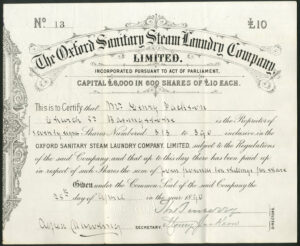 No 13 £10
The Oxford Sanitary Steam Laundry Company,
LIMITED.
INCORPORATED PURSUANT TO ACT OF PARLIAMENT.
CAPITAL £6,000 IN 600 SHARES OF £10 EACH.
This is to Certify that Mr Henry Jackson
Church St is the Proprietor of
Shares Numbered to 590 inclusive in the
OXFORD SANITARY STEAM LAUNDRY COMPANY, LIMITED, subject to the Regulations
of the said Company and that up to this day there has been paid up
in respect of such Shares the sum of per share
Given under the Common Seal of the said Company the
day of April in the year 1890
SECRETARY. Henry Jackson